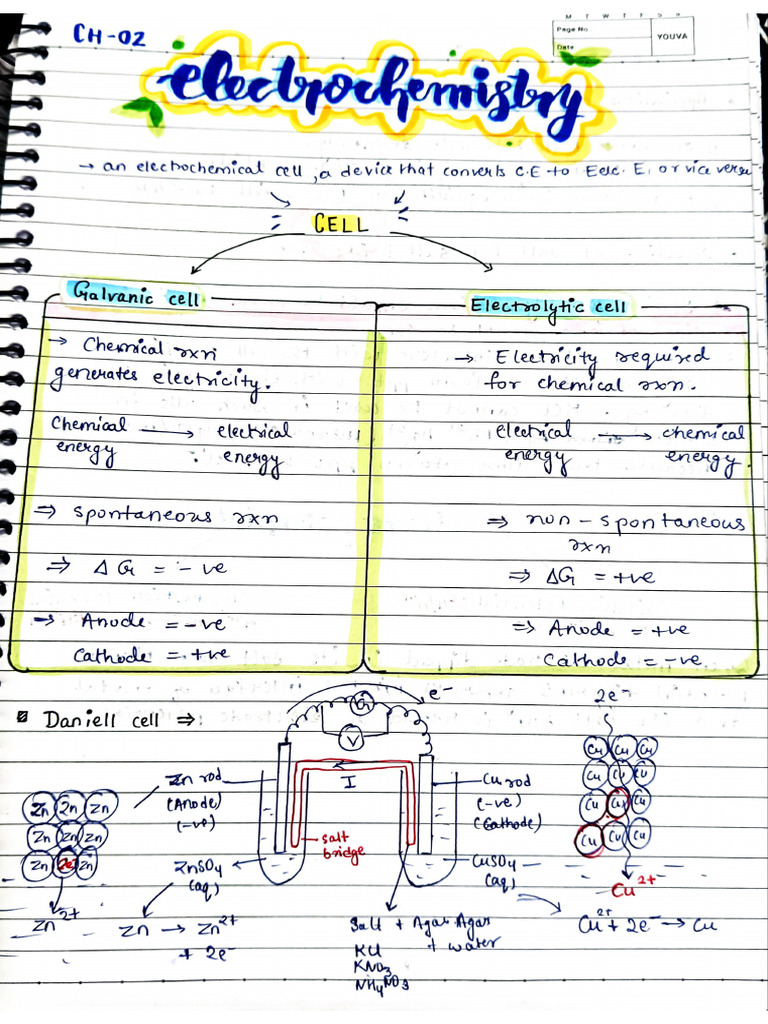 CH-02
M T W T F S S
Page No
Date
YOUVA
electrochemistry
→ an electrochemical cell, a device that converts C.E to Eelc. E, or vice versa
CELL
Galvanic cell
→ Chemical rxn
generates electricity.
Chemical → electrical
energy energy
⇒ spontaneous rxn
⇒ ΔG = -ve
→ Anode = -ve
Cathode = +ve
Electrolytic cell
→ Electricity required
for chemical rxn.
electrical → chemical
energy energy.
⇒ non-spontaneous
rxn
⇒ ΔG = +ve
⇒ Anode = +ve
Cathode = -ve
Daniell cell ⇒
e⁻
G
V
I
Zn rod
(Anode)
(-ve)
ZnSO4
(aq)
salt
bridge
Cu rod
(-ve)
(Cathode)
CuSO4
(aq)
Zn Zn Zn
Zn Zn Zn
Zn 2e⁻ Zn
Zn²⁺
Zn → Zn²⁺
+ 2e⁻
Salt + Agar Agar
+ water
KCl
KNO3
NH4NO3
2e⁻
Cu Cu Cu
Cu Cu Cu
Cu Cu Cu
Cu Cu Cu
Cu²⁺
Cu²⁺ + 2e⁻ → Cu